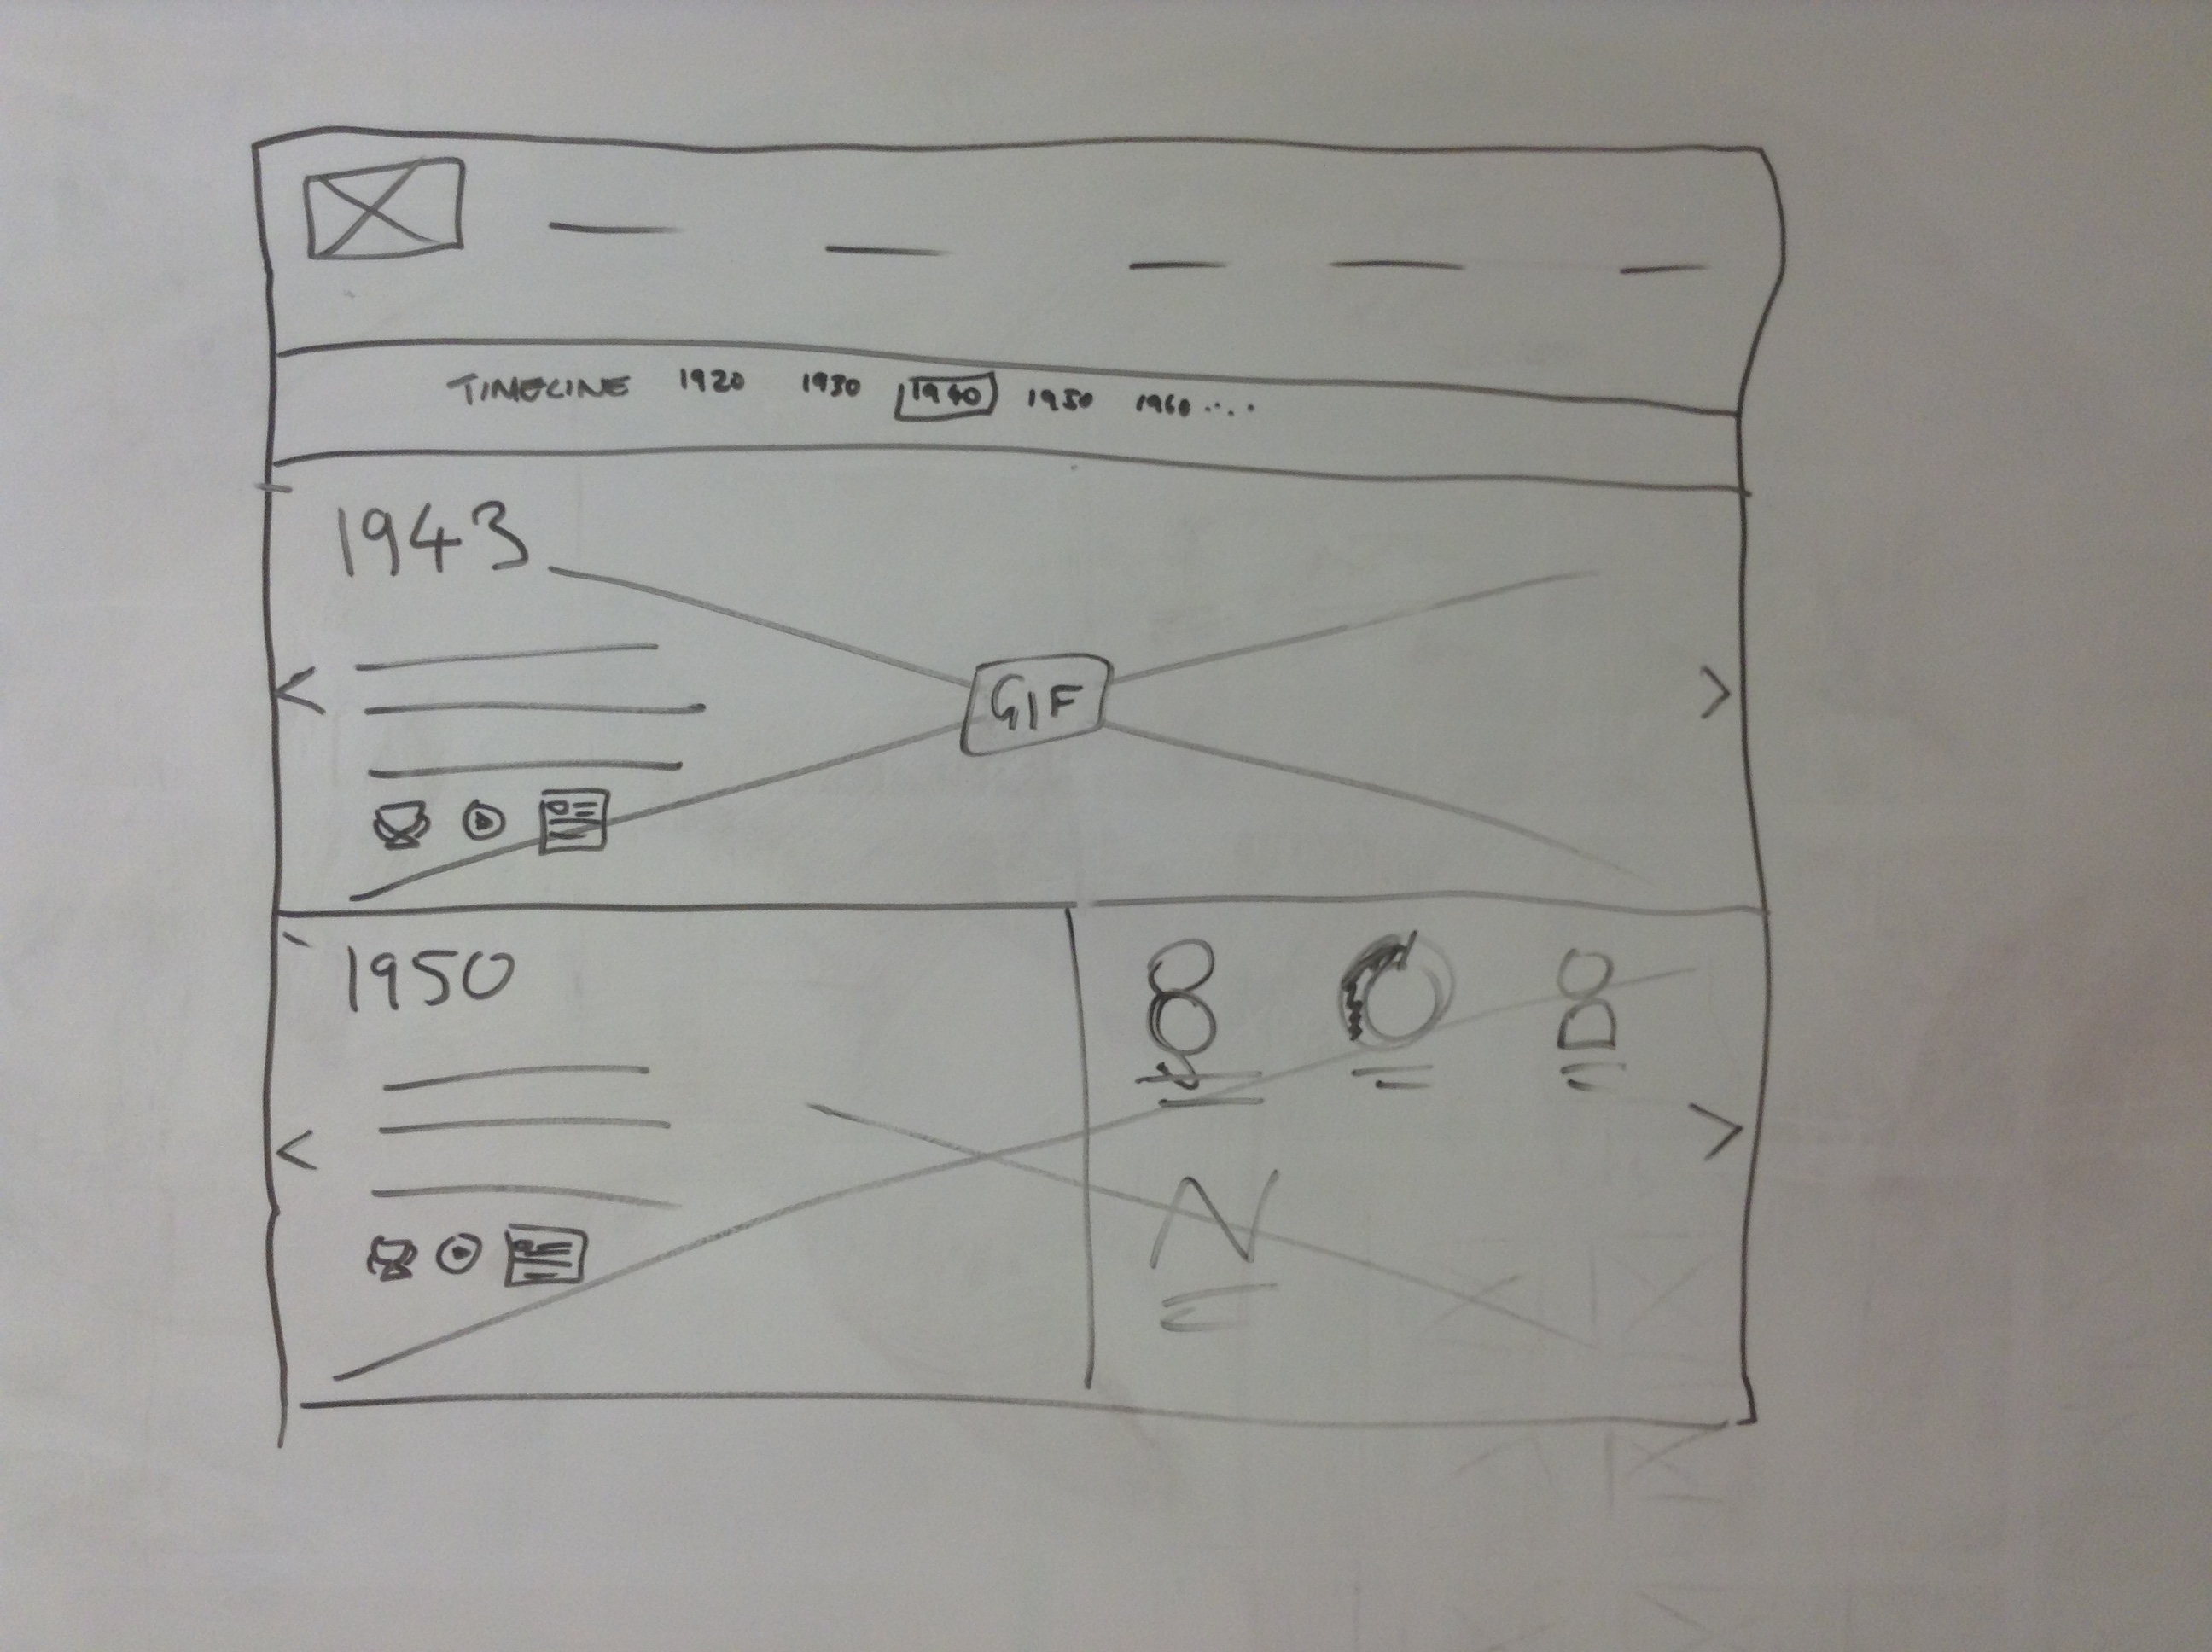 TIMELINE 1920 1930 1940 1950 1960....
1943
GIF
1950